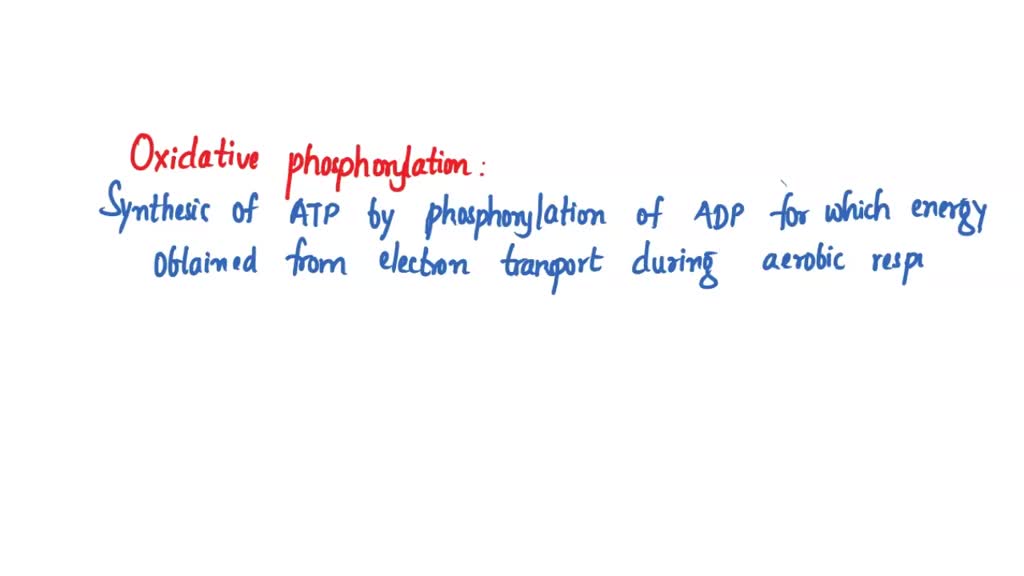 Oxidative phosphorylation:
Synthesic of ATP by phosphorylation of ADP for which energy
obtained from electron transport during aerobic resp